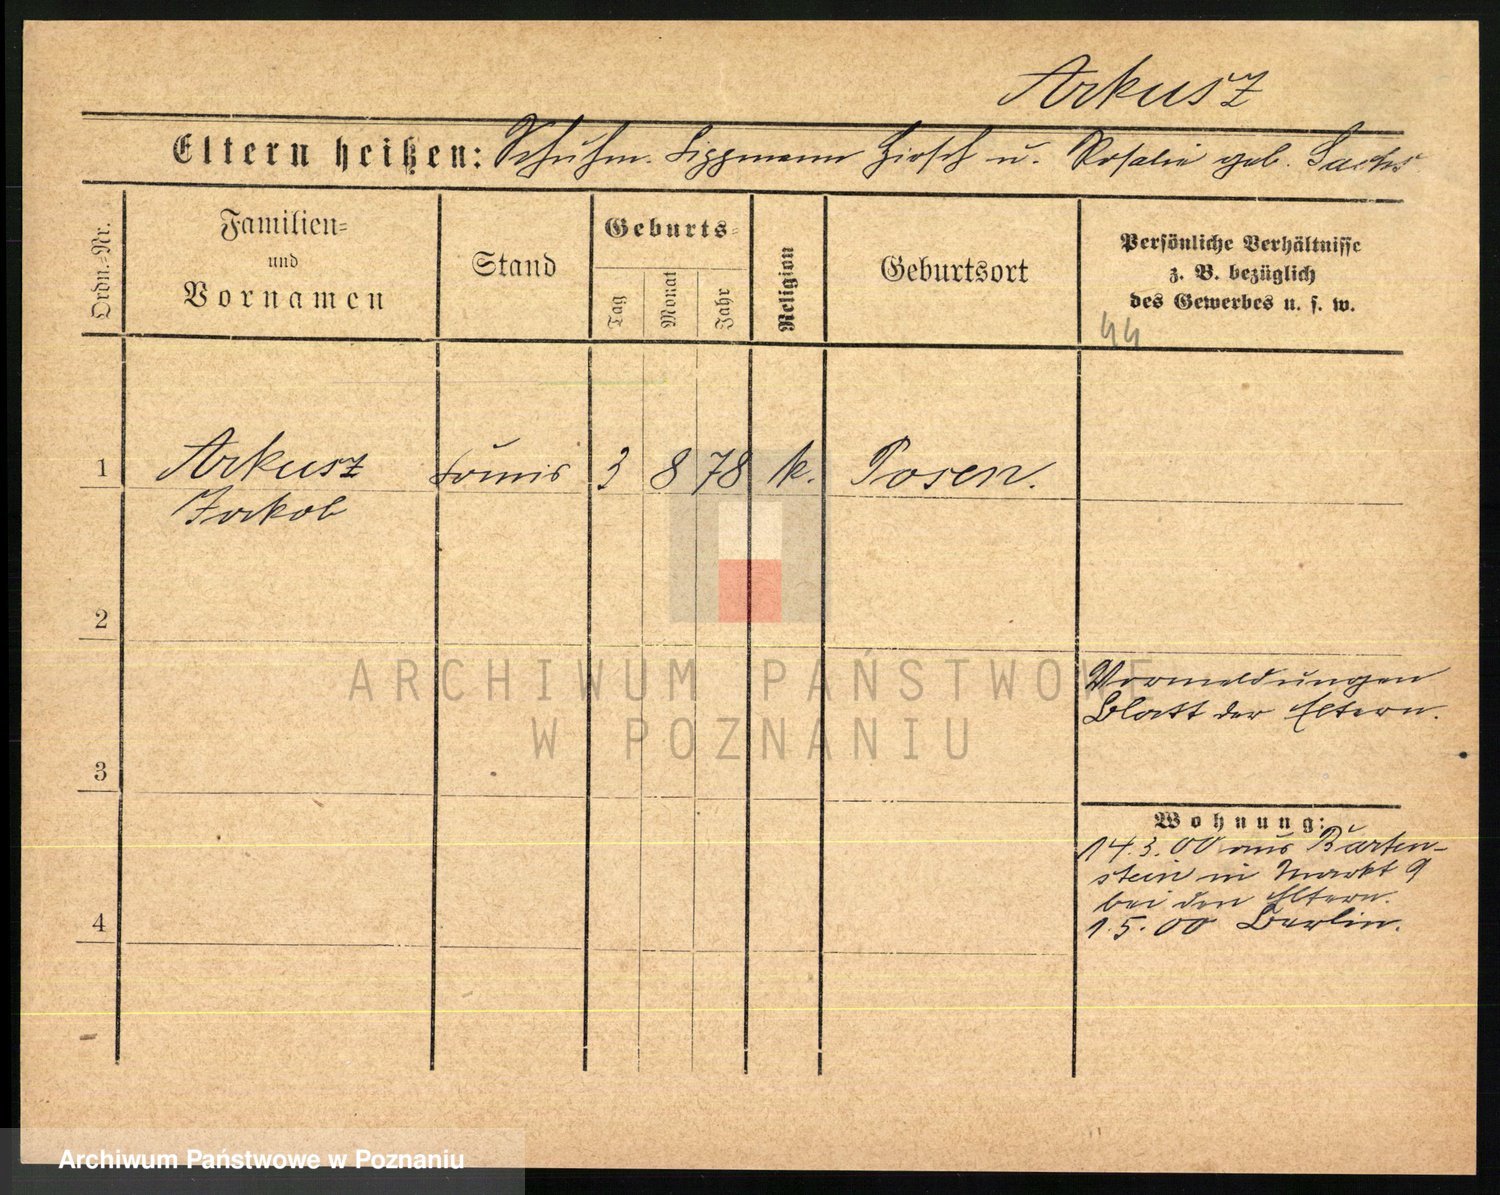 Arkusz
Eltern heißen: Schuhm. Lippmann Hirsch u. Rosalie geb. Sachs
Ordn.-Nr.
Familien-
und
Vornamen
Stand
Geburts-
Tag
Monat
Jahr
Religion
Geburtsort
Persönliche Verhältnisse
z. B. bezüglich
des Gewerbes u. s. w.
44
1 Arkusz 3 8 78 k. Posen.
Jakob
2
ARCHIWUM PAŃSTWOWE
W POZNANIU
Vormeldungen
Blatt der Eltern.
3
Wohnung:
14.3.00 aus Barten-
stein in Markt 9
bei den Eltern.
1.5.00 Berlin.
4
Archiwum Państwowe w Poznaniu